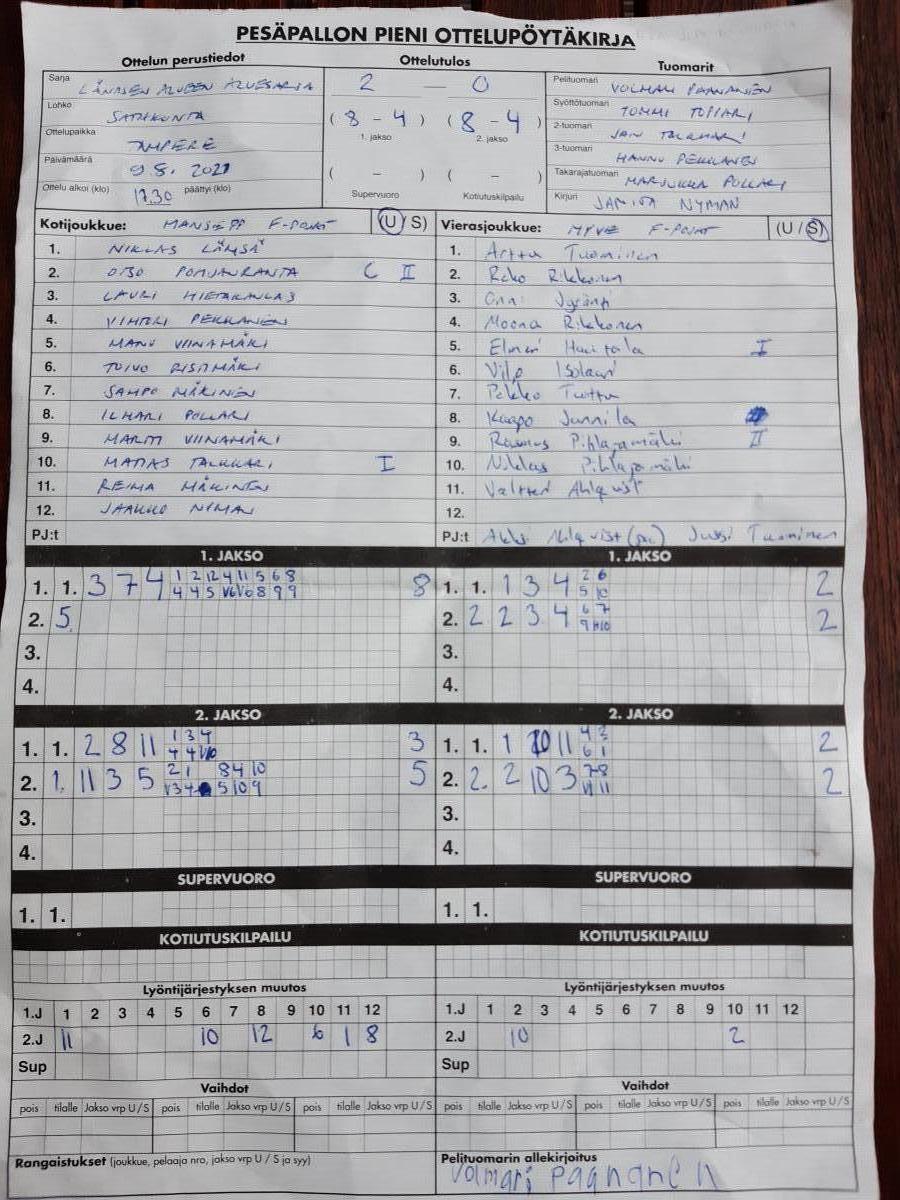 PESÄPALLON PIENI OTTELUPÖYTÄKIRJA
Ottelun perustiedot Ottelutulos Tuomarit
Sarja LÄNNEN ALUEEN ALUESARJA
Lohko SATAKUNTA
Ottelupaikka TAMPERE
Päivämäärä 9.8. 2021
Ottelu alkoi (klo) 17.30 päättyi (klo)
2 — 0
( 8 - 4 ) ( 8 - 4 )
1. jakso 2. jakso
( - ) ( - )
Supervuoro Kotiutuskilpailu
Pelituomari VOLMARI PAANANEN
Syöttötuomari TOMMI TOPPARI
2-tuomari JAN TALKKARI
3-tuomari HANNU PEKKANEN
Takarajatuomari MARJUKKA POLLARI
Kirjuri JANITA NYMAN
Kotijoukkue: MANSEPP F-POJAT (U/S)
1. NIKLAS LÄMSÄ
2. OTSO POHJANRANTA C II
3. LAURI HIETAKANGAS
4. VIHTORI PEKKANEN
5. MANU VIINAMÄKI
6. TOIVO RISTIMÄKI
7. SAMPO MÄKINEN
8. ILMARI POLLARI
9. MARTTI VIINAMÄKI
10. MATIAS TALKKARI I
11. REIMA MÄKINEN
12. JAAKKO NYMAN
PJ:t
Vierasjoukkue: MYVE F-POJAT (U/S)
1. Arttu Tuominen
2. Roko Rikkonen
3. Onni
4. Moona Rikkonen
5. Elmeri Huitala I
6. Vilp Isotauri
7. Pekko Tuittu
8. Kaapo Junnila
9. Rasmus Pihlajamäki II
10. Niklas Pihlajamäki
11. Valtteri Ahlqvist
12.
PJ:t Aleksi Ahlqvist (pj) Jussi Tuominen
1. JAKSO 1. JAKSO
1. 1. 3 7 4 1 2 12 4 11 5 6 8 8
4 4 5 V6 V6 8 9 9
2. 5
3.
4.
1. 1. 1 3 4 2 6 2
5 10
2. 2 2 3 4 6 7 2
9 H10
3.
4.
2. JAKSO 2. JAKSO
1. 1. 2 8 11 1 3 4 3
4 4 V10
2. 1. 11 3 5 2 1 8 4 10 5
V3 4 5 10 9
3.
4.
1. 1. 1 10 11 4 2 2
6 1
2. 2. 2 10 3 7 8 2
V1 11
3.
4.
SUPERVUORO SUPERVUORO
1. 1. 1. 1.
KOTIUTUSKILPAILU KOTIUTUSKILPAILU
Lyöntijärjestyksen muutos Lyöntijärjestyksen muutos
1.J 1 2 3 4 5 6 7 8 9 10 11 12
2.J 11 10 12 6 1 8
Sup
1.J 1 2 3 4 5 6 7 8 9 10 11 12
2.J 10 2
Sup
Vaihdot Vaihdot
pois tilalle Jakso vrp U/S pois tilalle Jakso vrp U/S pois tilalle Jakso vrp U/S
pois tilalle Jakso vrp U/S pois tilalle Jakso vrp U/S pois tilalle Jakso vrp U/S
Rangaistukset (joukkue, pelaaja nro, jakso vrp U / S ja syy)
Pelituomarin allekirjoitus
Volmari Paananen